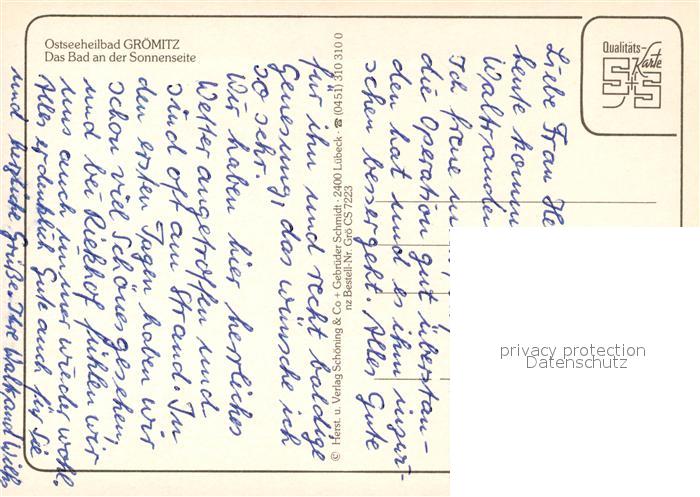 Ostseeheilbad GRÖMITZ
Das Bad an der Sonnenseite
Qualitäts-
Karte
S+S
Liebe Frau He
heute komm
Waltrauden
Ich freue
die Operation gut überstan-
den hat und es ihm inzwi-
schen bessergeht. Alles Gute
für ihn und recht baldige
Genesung, das wünsche ich
so sehr.
Wir haben hier herrliches
Wetter angetroffen und
sind oft am Strand. In
den ersten Tagen haben wir
schon viel Schönes gesehen,
und bei Riekhof fühlen wir
uns auch immer wieder wohl.
Alles erdenklich Gute auch für Sie
und herzliche Grüße. Ihre Waltraud
© Herst. u. Verlag Schöning & Co + Gebrüder Schmidt · 2400 Lübeck · ☎ (0451) 310 310 0
nz Bestell-Nr. Grö CS 7223
privacy protection
Datenschutz